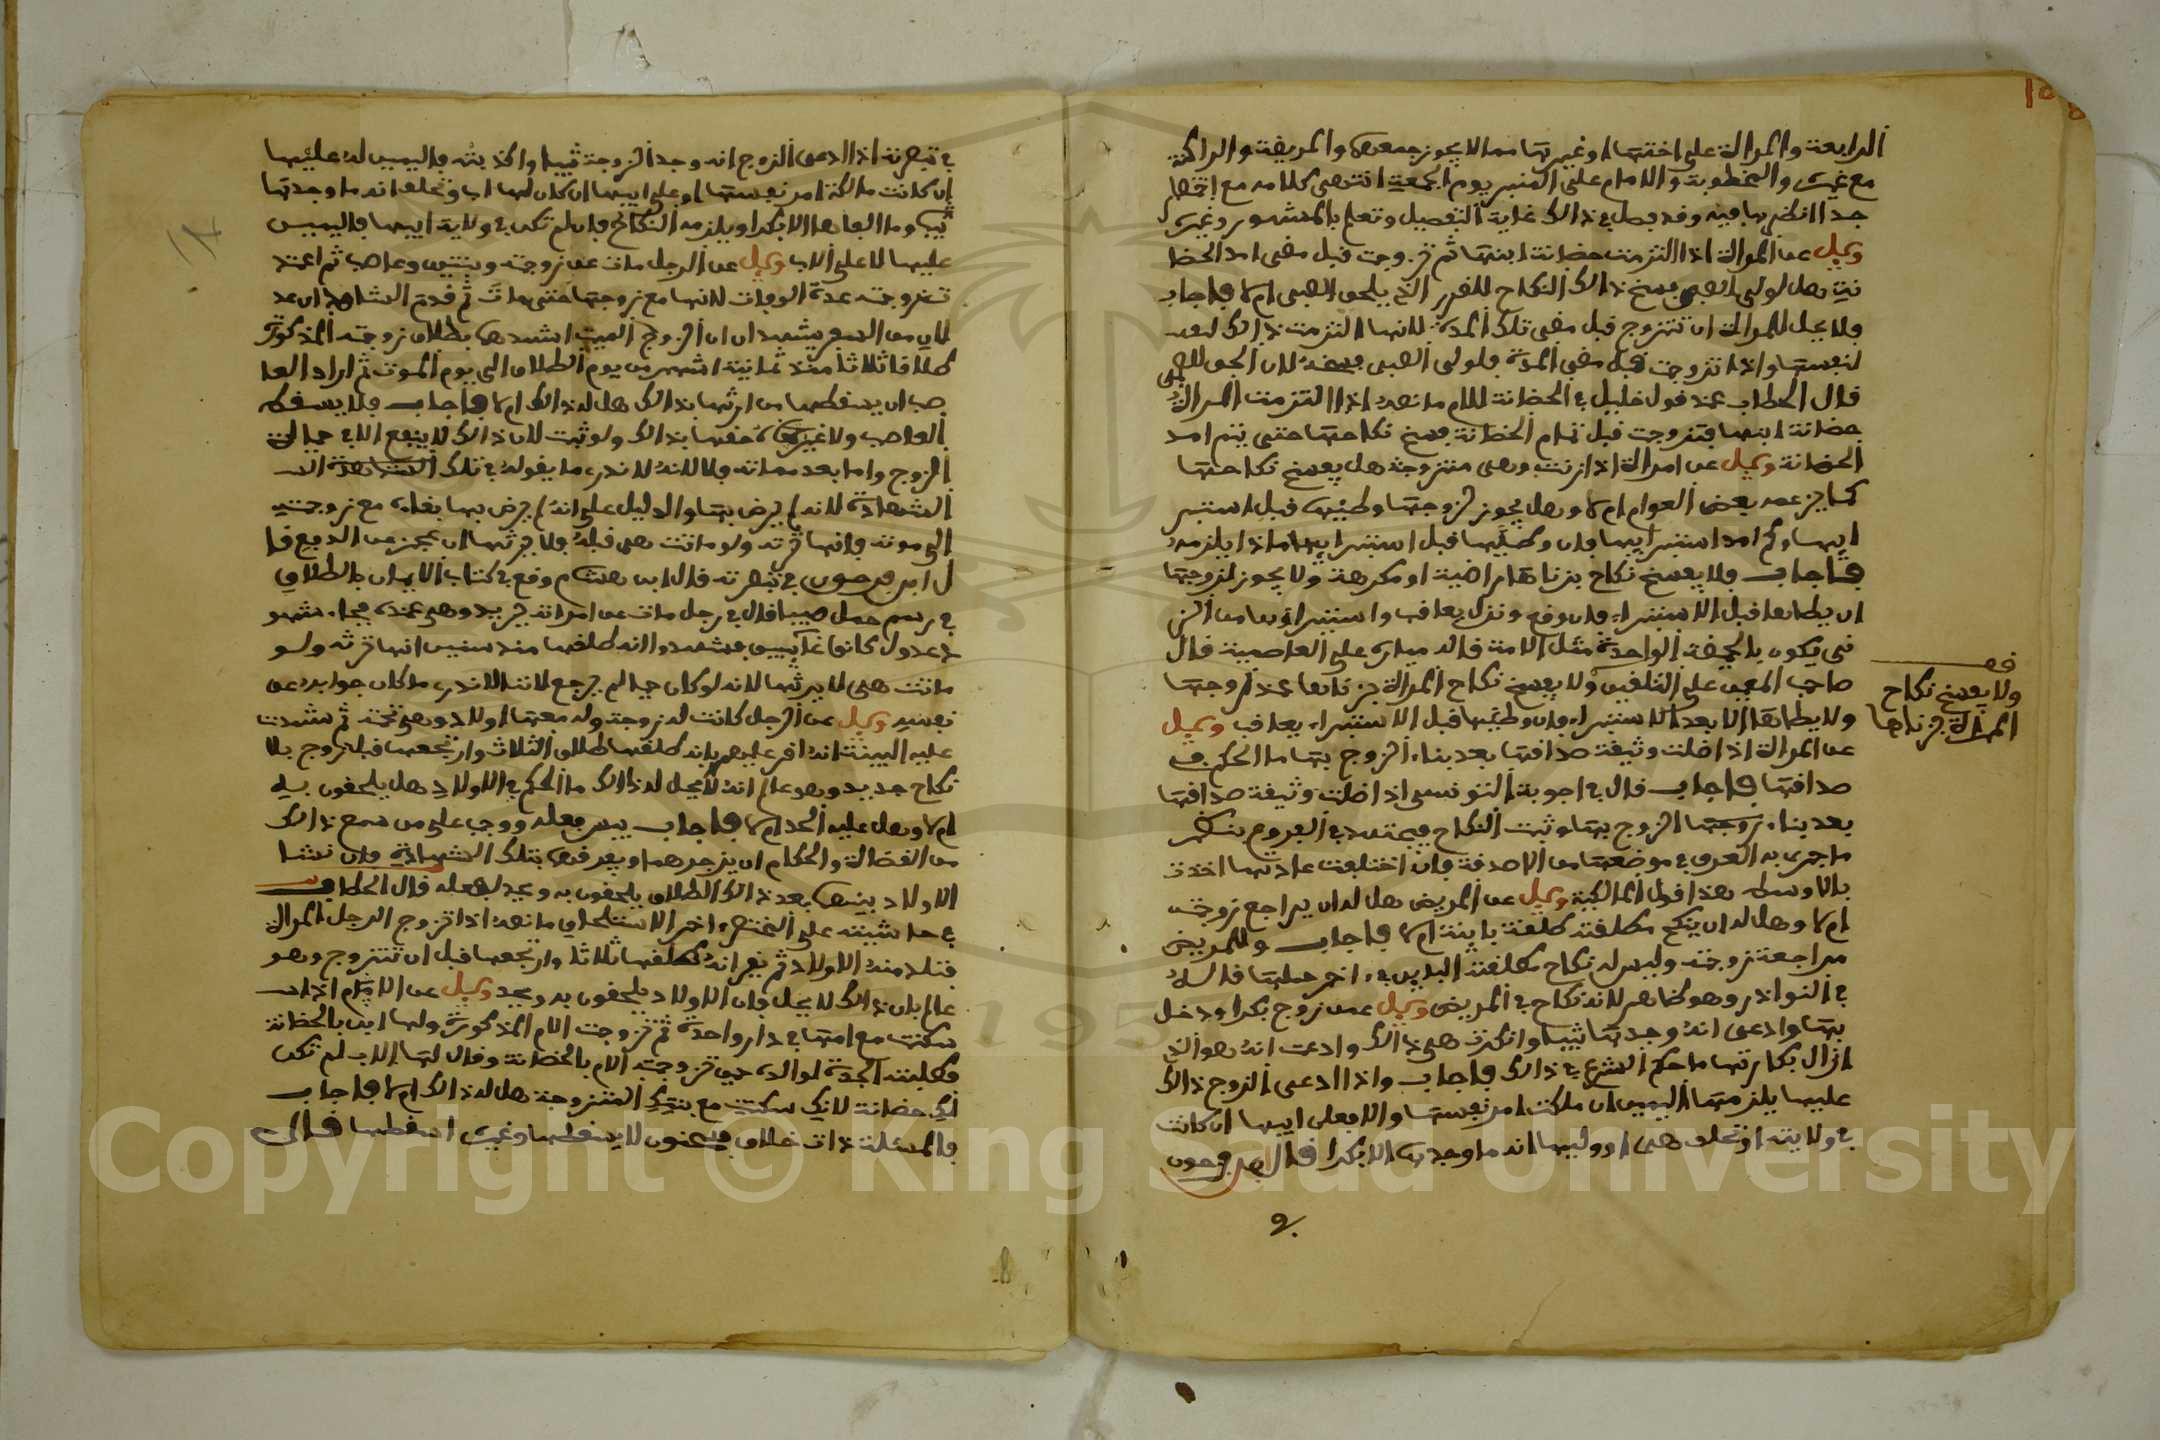 الرابعة والمرالة على اختها او غيرتها مما لا يجوز جمعهن والمريضة والراكنة
مع غيره والمخطوبة والامام على المنبر يوم الجمعة انتهى كلامه مع
جدا انظر بهافيه وقد فصل في ذالك غاية التفصيل وتعلم بالمشهور وغيره
وسيل عن المرالة اذا التزمت حضانة ابنتها ثم تزوجت قبل مضي امد الحضا
نة هل لولي الصبي فسخ ذالك النكاح للضرر الذي يلحق الصبي ام لا فاجاب
فلا يحل للمرالة ان تتزوج قبل مضي تلك المدة لانها التزمت ذالك
لنفسها واذا تزوجت قبل مضي المدة فلولي الصبي فسخه لان الحق للصبي
قال الحطاب عند قول خليل في الحضانة للام ما نصه اذا التزمت المرالة
حضانة ابنها فتزوجت قبل تمام الحضانة فسخ نكاحها حتى يتم امد
الحضانة وسيل عن امرالة اذا زنت وهي متزوجة هل يفسخ نكاحها
كما يزعمه بعض العوام ام لا وهل يجوز لزوجها وطئها قبل استبر
ايها وكم امد استبرايها فان وطئها قبل استبرايها ماذا يلزمه
فاجاب فلا يفسخ نكاح بزناها راضية او مكرهة ولا يجوز لزوجها
ان يطاها قبل الاستبراء فان وقع ونزل يعاقب واستبراؤها من الز
نى يكون بالحيضة الواحدة مثل الامة قاله ميارة على العاصمية قال
صاحب المعين على التلقين ولا يفسخ نكاح المرالة بزناها عند زوجها
ولا يطاها الا بعد الاستبراء فان وطئها قبل الاستبراء يعاقب وسيل
عن المرالة اذا ضلت وثيقة صداقها بعد بناء الزوج بها ما الحكم في
صداقها فاجاب قال في اجوبة التونسي اذا ضلت وثيقة صداقها
بعد بناء زوجها الزوج بها وثبت النكاح فيجتهد في الفروم بنظر
ما جرى به العرف في موضعها من الاصدقة فان اختلفت عادتها اخذت
بالاوسط هذا قول المالكية وسيل عن المريض هل له ان يراجع زوجته
ام لا وهل له ان ينكح مطلقته طلقة باينة ام لا فاجاب وللمريض
مراجعة زوجته وليس له نكاح مطلقته الباين في اخر حملها قاله
في النوادر وهو ظاهر لانه نكاح في المريض وسيل عمن زوج بكرا ودخل
بها وادعى انه وجدها ثيبا وانكرت هي ذالك وادعت انه هو الذي
ازال بكارتها ما حكم الشرع في ذالك فاجاب واذا ادعى الزوج ذالك
عليها يلزمها اليمين ان ملكت امر نفسها والا فعلى ابيها ان كانت
في ولايته او تحلف هي او وليها انه ما وجدها الا بكرا قال ابن فرحون
في
قف
ولا يفسخ نكاح
المرالة بزناها
في تبصرته اذا ادعى الزوج انه وجد الزوجة ثيبا واكذبته فاليمين له عليها
ان كانت مالكة امر نفسها او على ابيها ان كان لها اب وتحلف انه ما وجدها
ثيبا وما الفاها الا بكرا ويلزمه النكاح فان لم تكن في ولاية ابيها فاليمين
عليها لا على الاب وسيل عن الرجل مات عن زوجته وبنتين وعاصب ثم اعتد
ت زوجته عدة الوفات لانها مع زوجها حتى مات ثم قدم الشاهدان عد
لان من السفر يشهدان ان الزوج الميت اشهدهما بطلاق زوجته المذكورة
طلاقا ثلاثا منذ ثمانية اشهر من يوم الطلاق الى يوم الموت ثم اراد العا
صب ان يسقطها من ارثها بذالك هل له ذالك ام لا فاجاب فلا يسقط
العاصب ولا غيره حقها بذالك ولو ثبت لان ذالك لا ينفع الا في حيالة
الزوج واما بعد مماته فلا لانه لا ندري ما يقوله في تلك الشهادة
الشهادة لانه لم يرض بها والدليل على انه لم يرض بها بقاء مع زوجته
الى موته فانها ترثه ولو ماتت هي قبله فلا يرثها ان عجز عن الدفع قا
ل ابن فرحون في تبصرته قال ابن هشام وقع في كتاب الايمان بالطلاق
في رسم حمل صبيا قال في رجل مات عن امراته يريد وهي عنده فجاء شهو
د عدول كانوا غايبين فشهدوا انه طلقها منذ سنين انها ترثه ولو
ماتت هي لا يرثها لانه لو كان حيا لم يرجع لاننا لا ندري ما كان جوابه عن
نفسه وسيل عن الرجل كانت له زوجة وله معها اولاد وهي تحته ثم شهدت
عليه البينة انه اقر عليهم بانه طلقها طلاق الثلاث وارتجعها قبل زوج بلا
نكاح جديد وهو عالم انه لا يحل له ذالك ما الحكم في الاولاد هل يلحقون به
ام لا وهل عليه الحد ام لا فاجاب بيس فعله ووجب على من سمع ذالك
من القضالة والحكام ان يزجرهما ويفرقهما بتلك الشهادة وان نشا
الاولاد بينهما بعد ذالك الطلاق يلحقون به ويحد لفعله قال الحطاب
في حاشيته على المختصر اخر الاستلحاق ما نصه اذا تزوج الرجل المرالة
فتلد منه الاولاد ثم يقر انه طلقها ثلاثا وارتجعها قبل ان تتزوج وهو
عالم بان ذالك لا يحل فان الاولاد يلحقون به ويحد وسيل عن الام اذا
سكنت مع امها في دار واحدة ثم تزوجت الام المذكورة ولها ابن بالحضانة
فطلبته الجدة لوالده حين تزوجت الام بالحضانة وقال لها الاب لم تكن
لك حضانة لانك سكنت مع بنتك المتزوجة هل له ذالك ام لا فاجاب
فالمسئلة ذات خلاف فسحنون لا يسقطها وغيره اسقطها قال